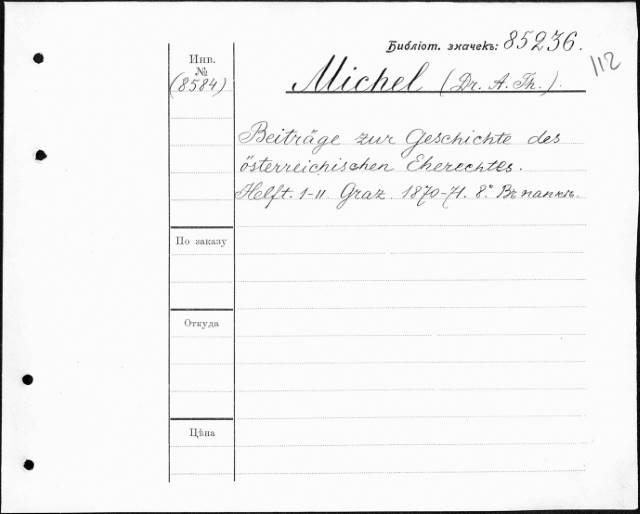 Библіот. значекъ: 85236.
112
Инв.
№
(8584)
Michel (Dr. A. Th.).
Beiträge zur Geschichte des
österreichischen Eherechtes.
Helft. I-II Graz. 1870-71. 8° Въ папкѣ.
По заказу
Откуда
Цѣна